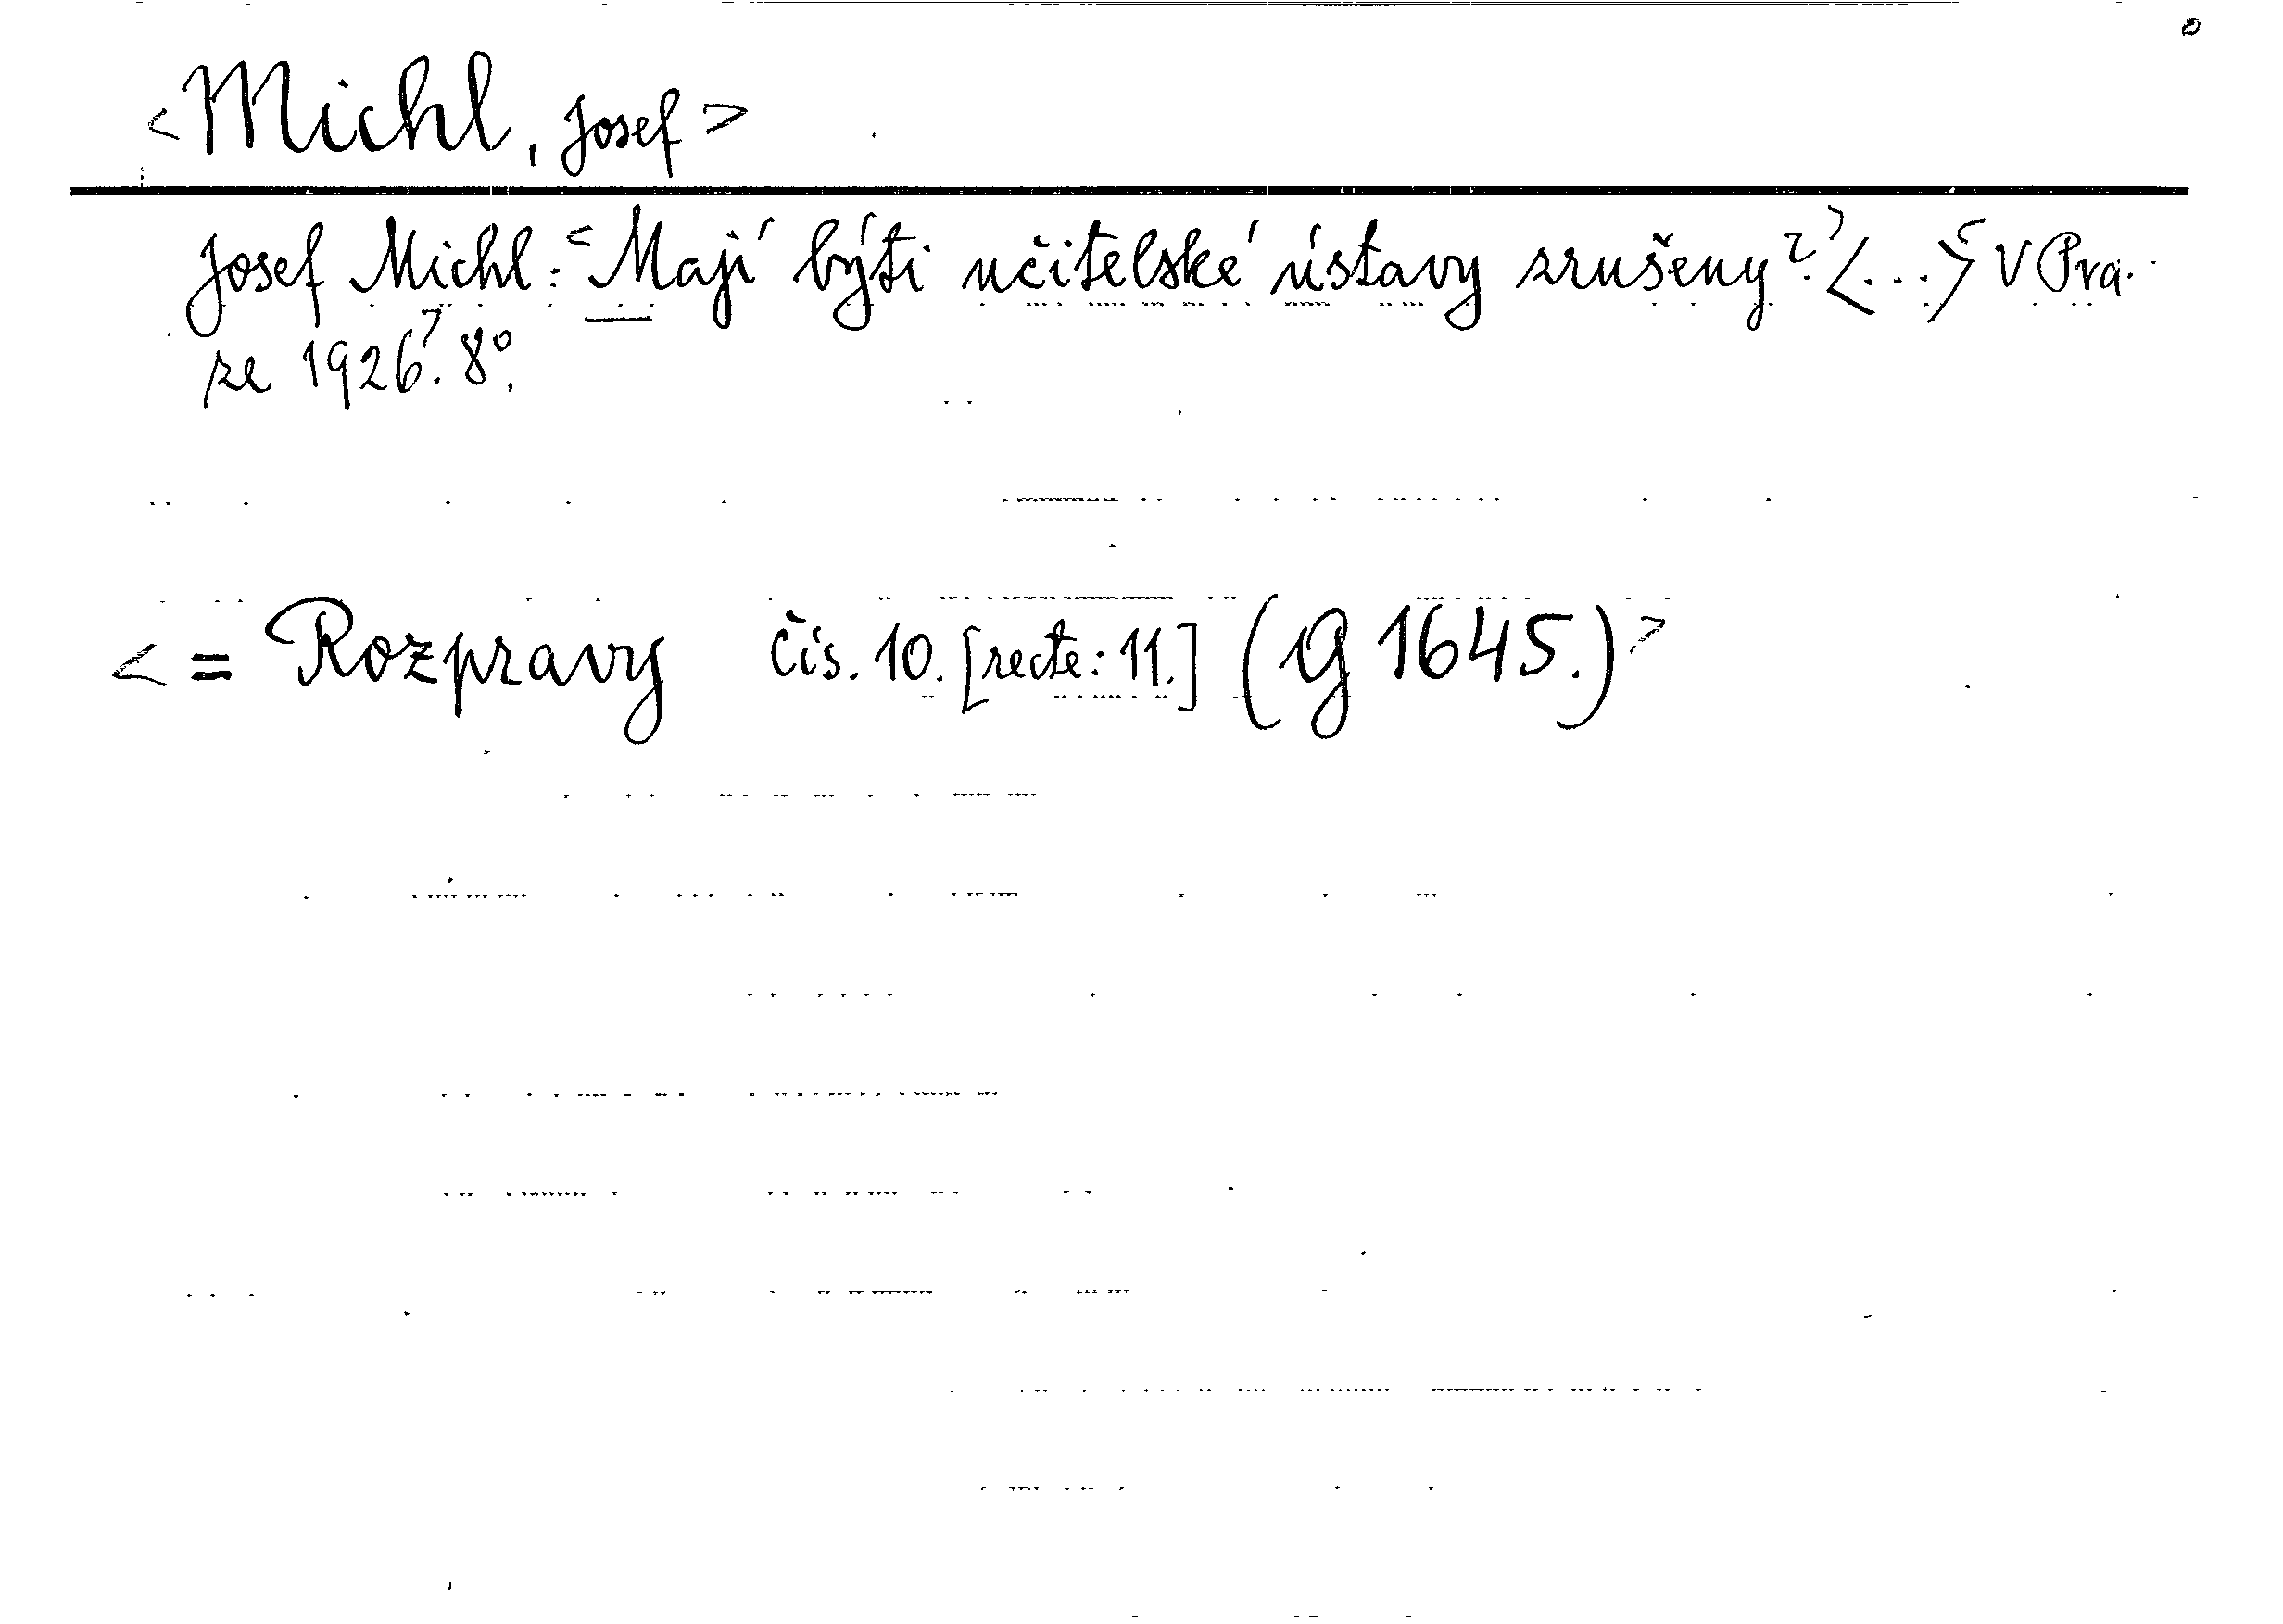 <Michl, Josef>
Josef Michl: <Mají býti učitelské ústavy zrušeny?> <...> <V Pra-
ze 1926>. 8°.
<= Rozpravy čís. 10. [recte: 11.] (G 1645.)>